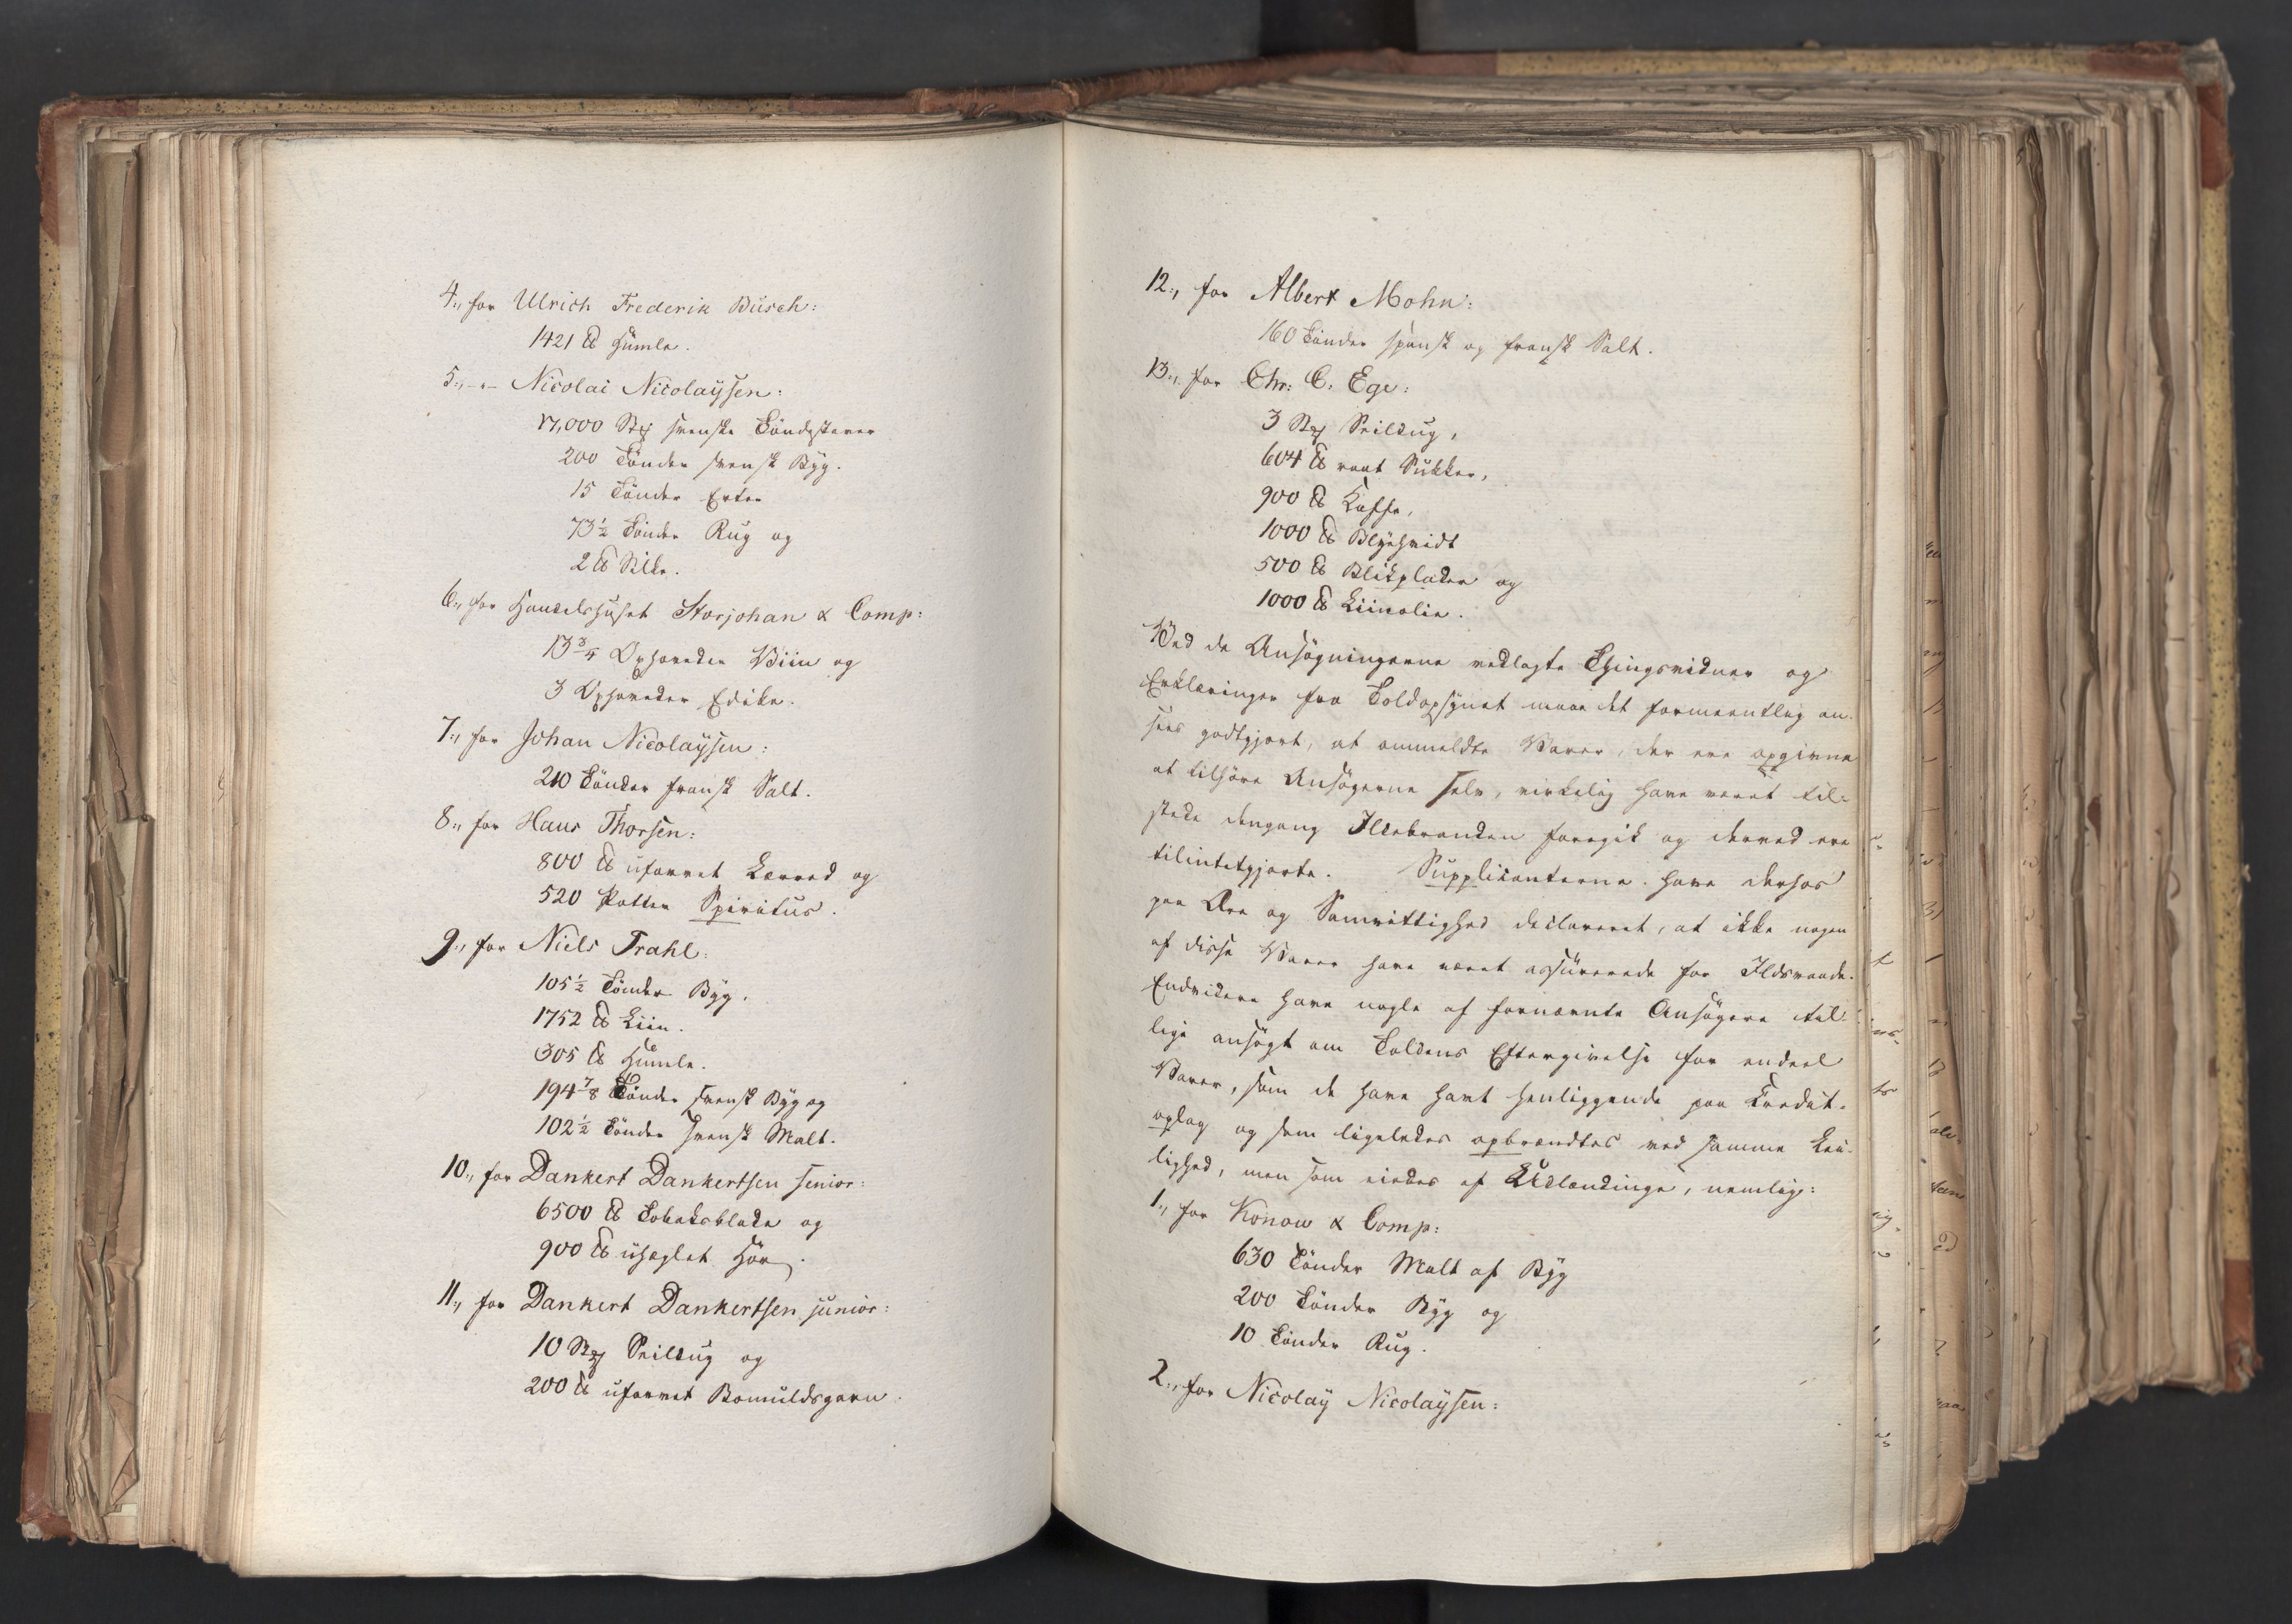 4., for Ulrich Frederik Büsch:
1421 ℔ Humle.
5., -"- Nicolai Nicolaysen:
17,000 Stk svenske Töndestaver
200 Tönder svensk Byg.
15 Tönder Erter
73½ Tönder Rug og
2 ℔ Silke.
6., for Handelshuset Storjohan & Comp:
13¾ Oxhoveder Viin og
3 Oxhoveder Edike.
7., for Johan Nicolaysen:
210 Tönder fransk Salt.
8., for Hans Thorsen:
800 ℔ ufarvet Lærred og
520 Potter Spiritus.
9., for Niels Trahl:
105½ Tönder Byg.
1752 ℔ Liin.
305 ℔ Humle.
194⅞ Tönder svensk Byg og
102½ Tönder svensk Malt.
10., for Dankert Dankertsen senior:
6500 ℔ Tobaksblade og
900 ℔ uheglet Hör.
11., for Dankert Dankertsen junior:
10 Stk Seildug og
200 ℔ ufarvet Bomuldsgarn.
12., for Albert Mohn:
160 Tönder spansk og fransk Salt.
13., for Chr: C. Ege:
3 Stk Seildug,
604 ℔ raat Sukker,
900 ℔ Kaffe,
1000 ℔ Blyehvidt
500 ℔ Blikplader og
1000 ℔ Liinolie.
Ved de Ansögningerne vedlagte Thingsvidner og
Erklæringer fra Toldopsynet maae det formeentlig an-
sees godtgjort, at anmeldte Varer, der ere opgivne
at tilhöre Ansögerne selv, virkelig have været til-
stede dengang Ildebranden foregik og derved ere
tilintetgjorte. Supplicanterne have derhos
paa Ære og Samvittighed declareret, at ikke nogen
af disse Varer have været assurerede for Ildsvaade.
Endvidere have nogle af fornævnte Ansögere til-
lige ansögt om Toldens Eftergivelse for endeel
Varer, som de have havt henliggende paa Credit-
oplag og som ligeledes opbrændtes ved samme Lei-
lighed, men som eiedes af Udlændinge, nemlig:
1., for Konow & Comp:
630 Tönder Malt af Byg
200 Tönder Byg og
10 Tönder Rug.
2., for Nicolay Nicolaysen: